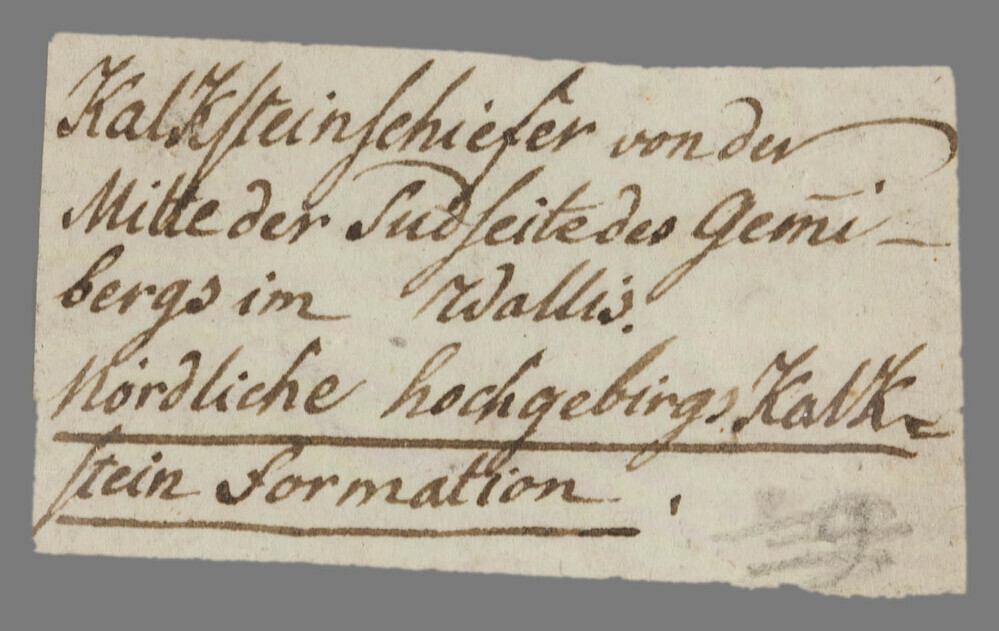 Kalksteinschiefer von der
Mitte der Sudseite des Gem̅i-
bergs im Wallis.
Nördliche hochgebirgs Kalk=
stein Formation.